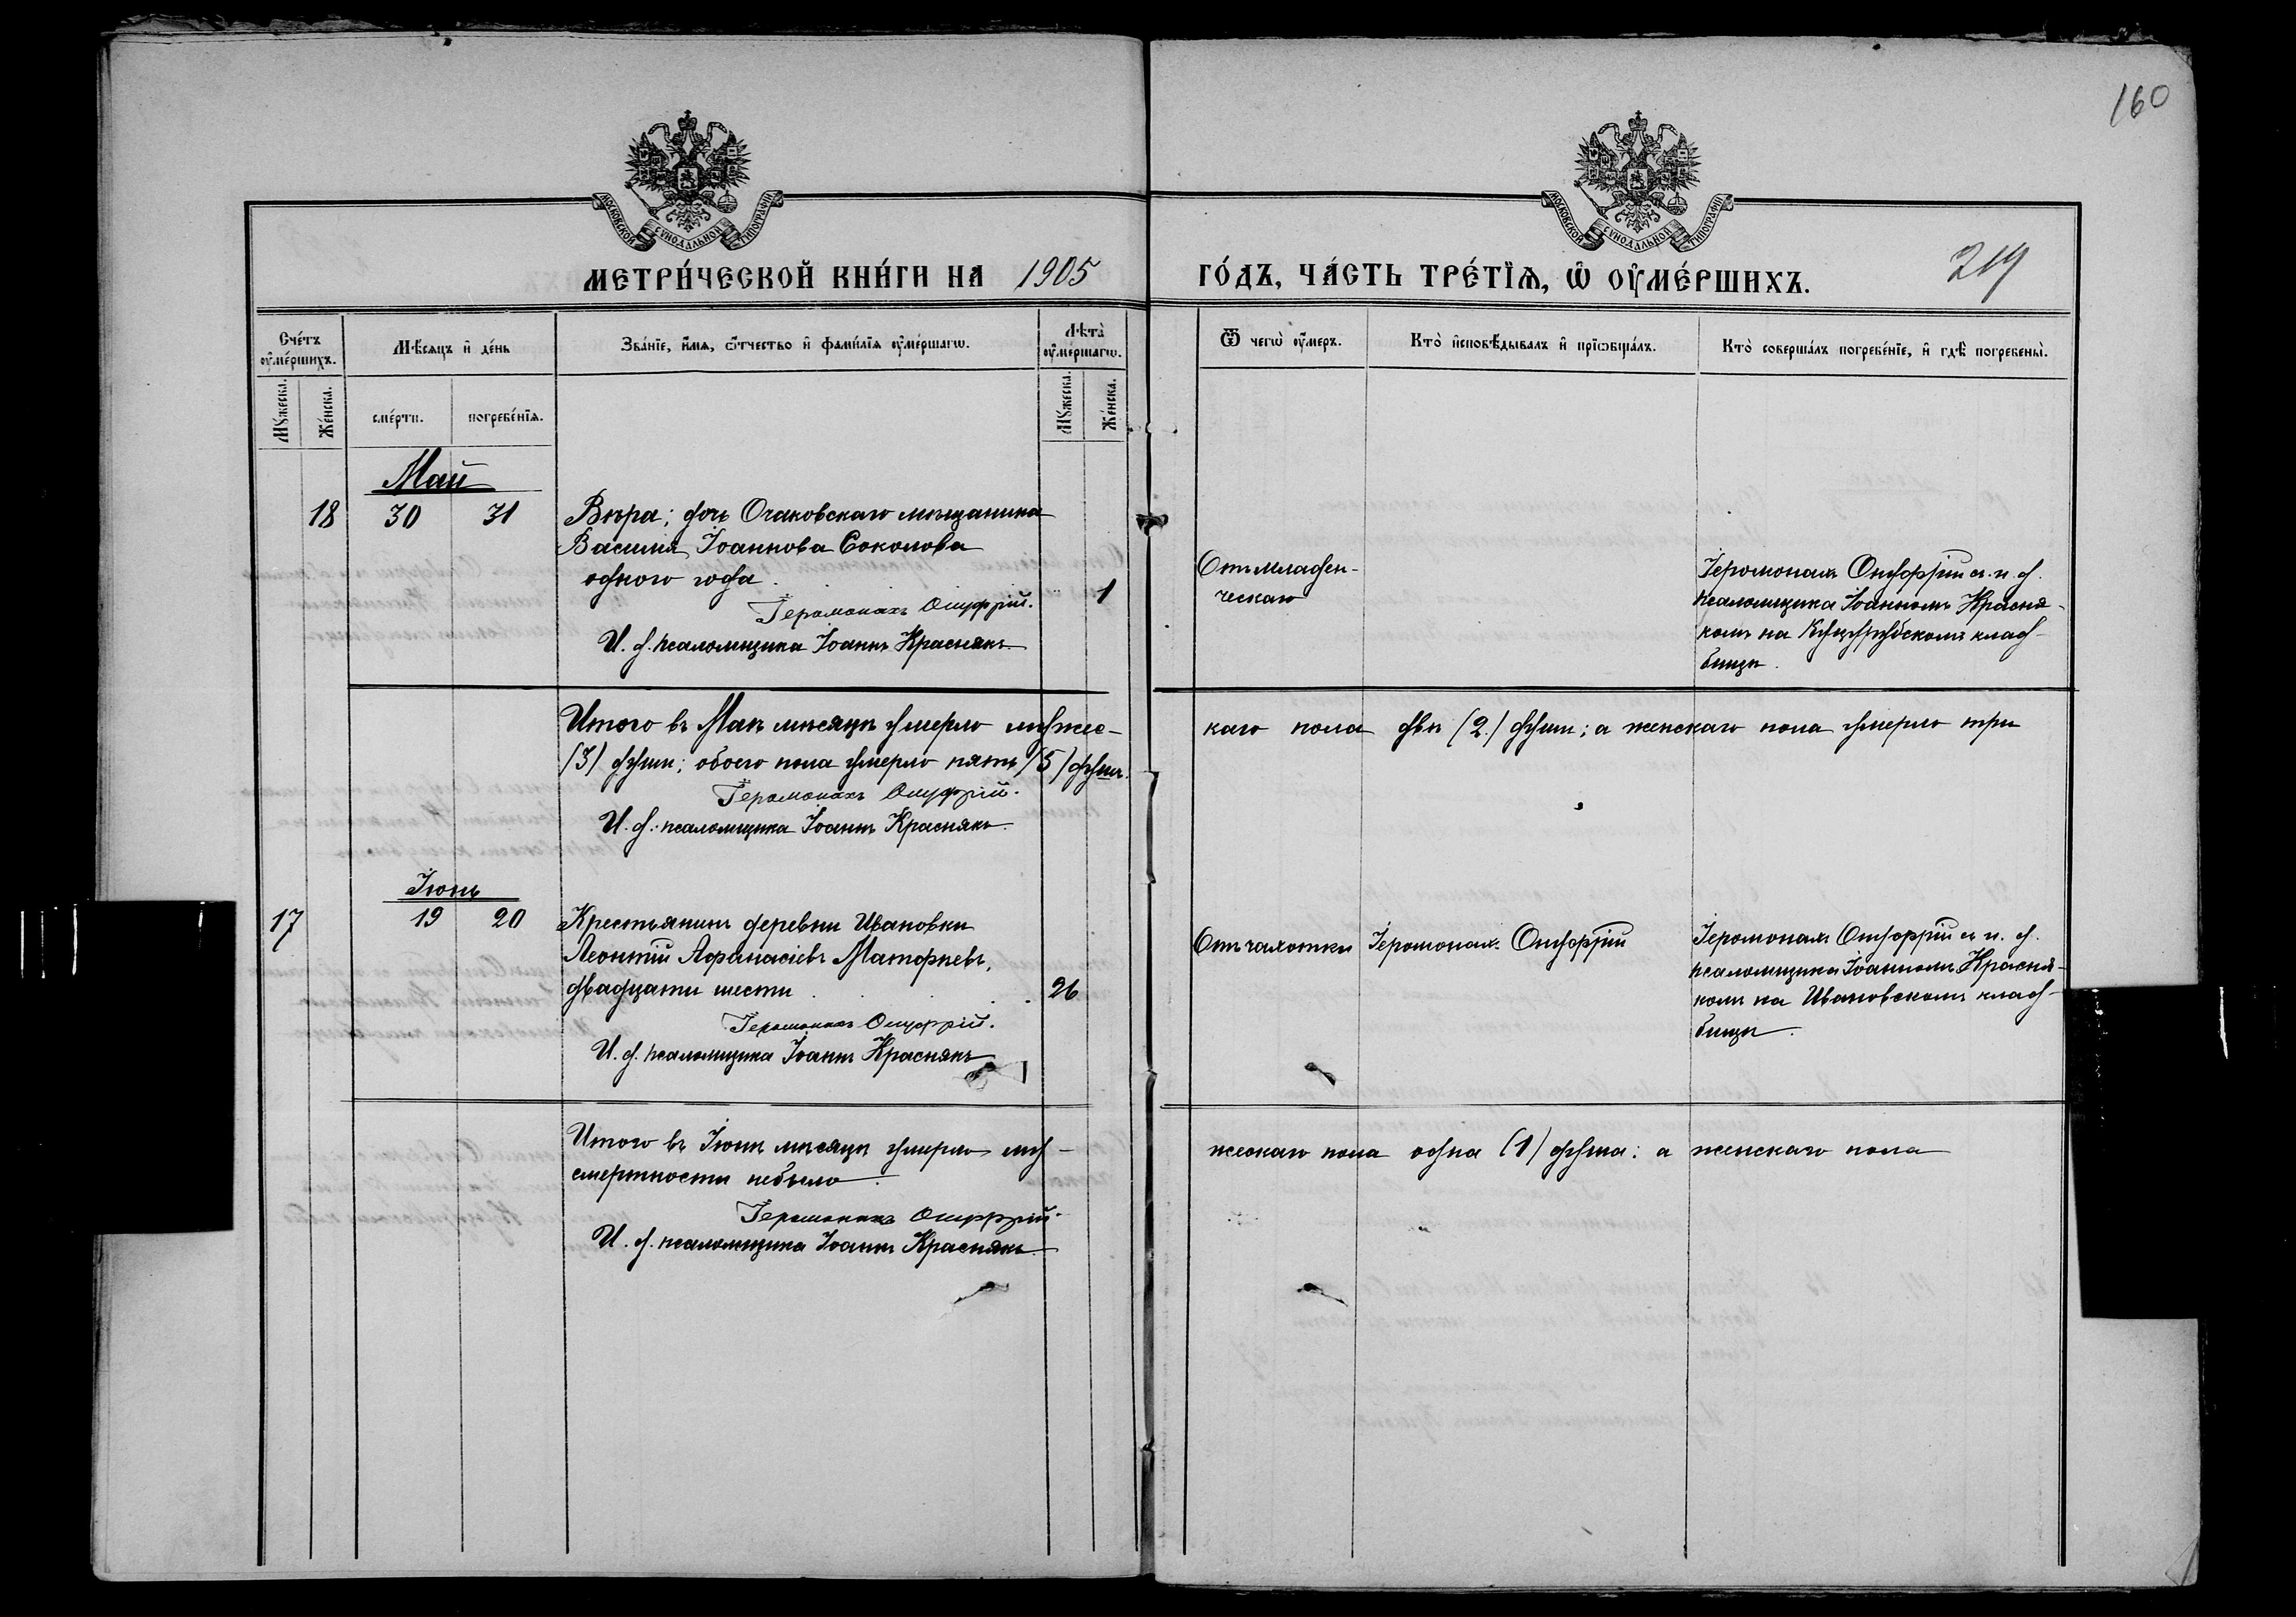 160
МОСКОВСКОЙ СѴНОДАЛЬНОЙ ТИПОГРАФІИ
МОСКОВСКОЙ СѴНОДАЛЬНОЙ ТИПОГРАФІИ
МЕТРИ́ЧЕСКОЙ КНИ́ГИ НА 1905
ГО́ДЪ, ЧА́СТЬ ТРЕ́ТІѦ, Ѡ ОУ҆МЕ́РШИХЪ.
219
Сче́тъ оу҆ме́ршихъ.
Мѣ́сяцъ и҆ де́нь
Зва́нїе, и҆́мѧ, ѻ҆́тчество и҆ фами́лїѧ оу҆ме́ршагѡ.
Лѣта̀ оу҆ме́ршагѡ.
Ѿ чегѡ̀ оу҆́меръ.
Кто̀ и҆сповѣ́дывалъ и҆ прїѡбща́лъ.
Кто̀ соверша́лъ погребе́нїе, и҆ гдѣ̀ погребены̀.
Мꙋ́жеска.
Же́нска.
сме́рти.
погребе́нїѧ.
Мꙋ́жеска.
Же́нска.
Май
18 30 31 Вѣра; дочь Очаковскаго мѣщанина
Василія Іоаннова Соколова
одного года. 1
Іеромонахъ Онуфрій.
И. д. псаломщика Іоаннъ Краснякъ
Отъ младен-
ческаго
Іеромонахъ Онуфрій съ и. д.
псаломщика Іоанномъ Красня-
комъ на Куцурубскомъ клад-
бищѣ.
Итого въ Маѣ мѣсяцѣ умерло мужес-
каго пола двѣ (2.) души; а женскаго пола умерло три
(3) души; обоего пола умерло пять (5) душъ.
Іеромонахъ Онуфрій.
И. д. псаломщика Іоаннъ Краснякъ.
Іюнь
17 19 20 Крестьянинъ деревни Ивановки
Леонтій Афанасіевъ Матфѣевъ,
двадцати шести 26
Іеромонахъ Онуфрій.
И. д. псаломщика Іоаннъ Краснякъ
Отъ чахотки
Іеромонахъ Онуфрій
Іеромонахъ Онуфрій съ и. д.
псаломщика Іоанномъ Красня-
комъ на Ивановскомъ клад-
бищѣ.
Итого въ Іюнѣ мѣсяцѣ умерло му-
жескаго пола одна (1) душа: а женскаго пола
смертности небыло.
Іеромонахъ Онуфрій.
И. д. псаломщика Іоаннъ Краснякъ.